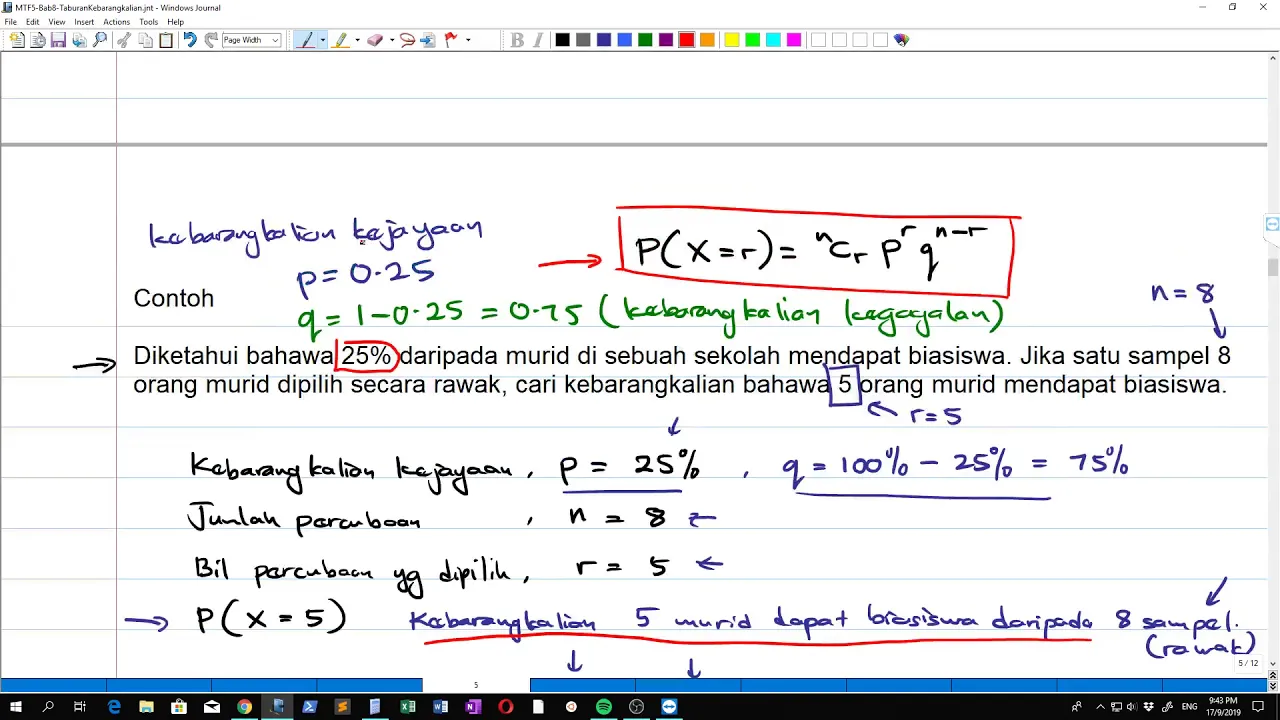 MTF5-Bab8-TaburanKebarangkalian.jnt - Windows Journal
File Edit View Insert Actions Tools Help
Page Width
B I
kebarangkalian kejayaan
P(X=r) = ⁿCᵣ pʳ qⁿ⁻ʳ
p = 0.25
n = 8
Contoh
q = 1 - 0.25 = 0.75 (kebarangkalian kegagalan)
Diketahui bahawa 25% daripada murid di sebuah sekolah mendapat biasiswa. Jika satu sampel 8
orang murid dipilih secara rawak, cari kebarangkalian bahawa 5 orang murid mendapat biasiswa.
r = 5
Kebarangkalian kejayaan, p = 25%, q = 100% - 25% = 75%
Jumlah percubaan, n = 8
Bil percubaan yg dipilih, r = 5
P(X = 5) Kebarangkalian 5 murid dapat biasiswa daripada 8 sampel.
(rawak)
5 / 12
5
9:43 PM
ENG
17/9/2019